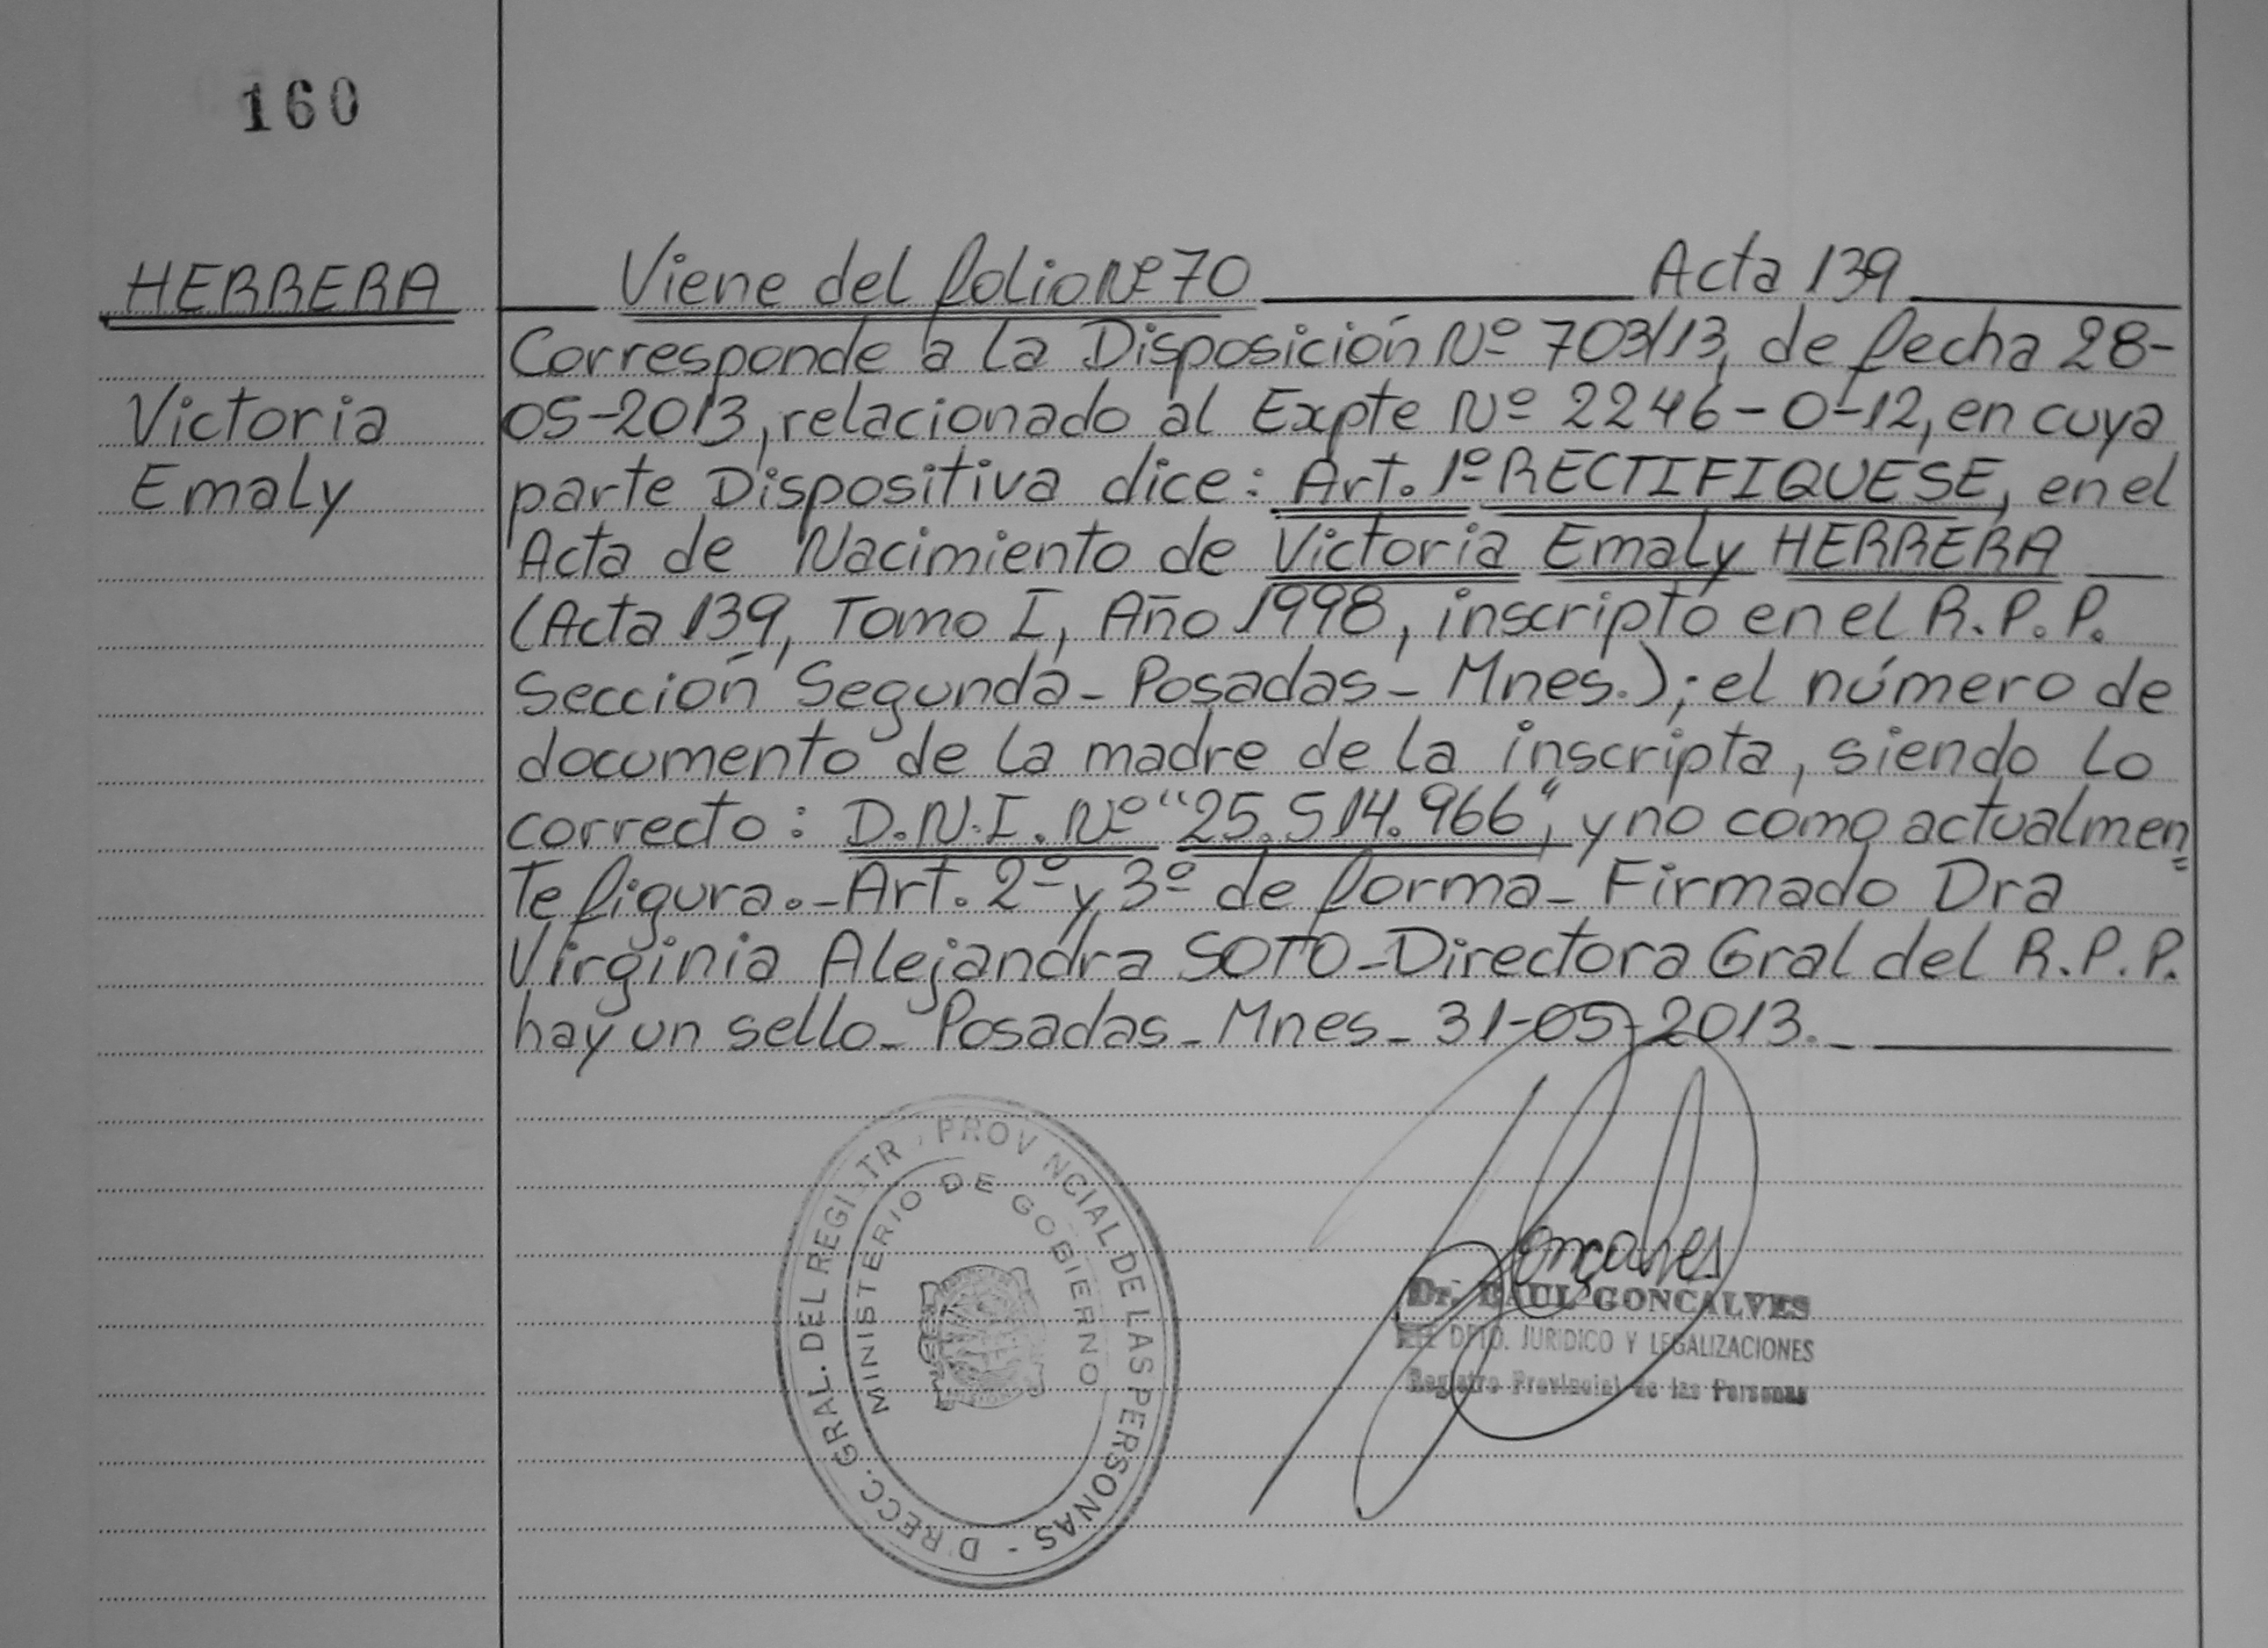 160
HERRERA
Victoria
Emaly
Viene del folio Nº 70 Acta 139
Corresponde a la Disposición Nº 703/13, de fecha 28-
05-2013, relacionado al Expte Nº 2246-0-12, en cuya
parte Dispositiva dice: Art. 1º RECTIFIQUESE, en el
Acta de Nacimiento de Victoria Emaly HERRERA
(Acta 139, Tomo I, Año 1998, inscripto en el R.P.P.
Sección Segunda - Posadas - Mnes.); el número de
documento de la madre de la inscripta, siendo lo
correcto: D.N.I. Nº "25.514.966", y no como actualmen=
te figura.- Art. 2º y 3º de forma - Firmado Dra
Virginia Alejandra SOTO - Directora Gral del R.P.P.
hay un sello - Posadas - Mnes - 31-05-2013.-
D RECC. GRAL. DEL REGI TR PROV NCIAL DE LAS PERSONAS -
MINISTERIO DE GOBIERNO
Gonçalves
Dr. RAUL GONCALVES
DPTO. JURIDICO Y LEGALIZACIONES
Registro Provincial de las Personas